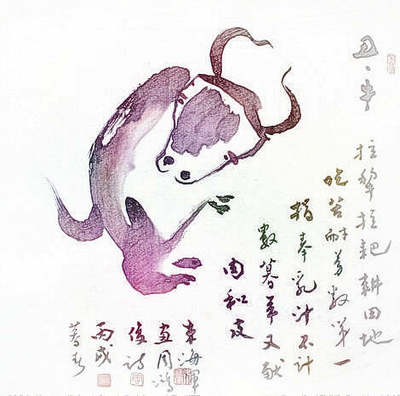 丑、牛
拉犁拉耙耕田地
吃苦耐劳数第一
奉乳汁不计
数暮年又献
肉和皮
海
画周
俊诗
丙戌
暮春